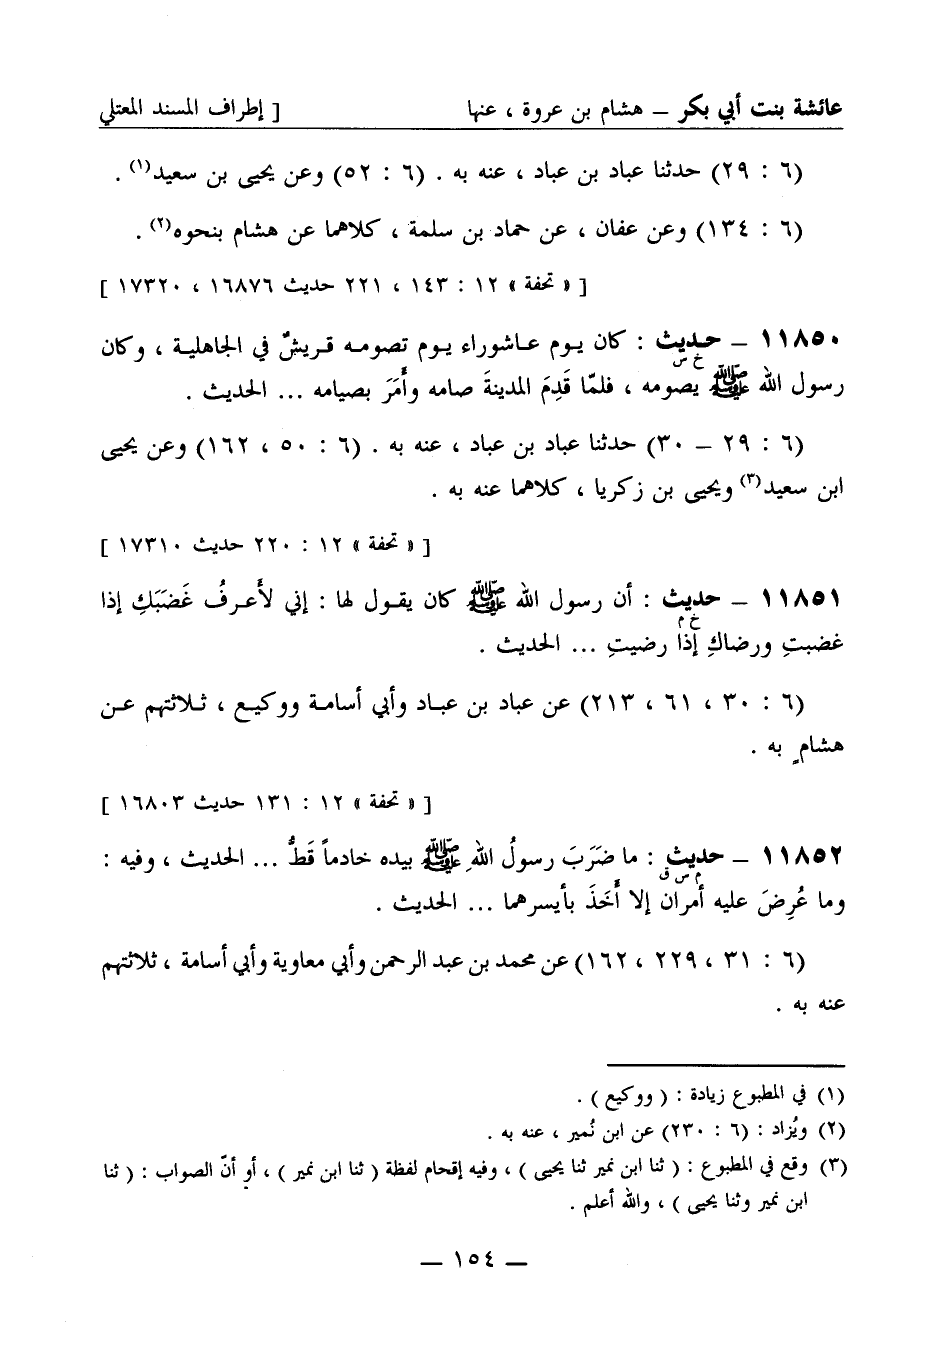 عائشة بنت أبي بكر – هشام بن عروة ، عنها [ إطراف المسند المعتلي
(٦ : ٢٩) حدثنا عباد بن عباد ، عنه به . (٦ : ٥٢) وعن يحيى بن سعيد(١) .
(٦ : ١٣٤) وعن عفان ، عن حماد بن سلمة ، كلاهما عن هشام بنحوه(٢) .
[ « تحفة » ١٢ : ١٤٣ ، ٢٢١ حديث ١٦٨٧٦ ، ١٧٣٢٠ ]
١١٨٥٠ – حديث : كان يوم عاشوراء يوم تصومه قريشٌ في الجاهلية ، وكان
خ س
رسول الله ﷺ يصومه ، فلمّا قَدِمَ المدينةَ صامه وأَمَرَ بصيامه ... الحديث .
(٦ : ٢٩ – ٣٠) حدثنا عباد بن عباد ، عنه به . (٦ : ٥٠ ، ١٦٢) وعن يحيى
ابن سعيد(٣) ويحيى بن زكريا ، كلاهما عنه به .
[ « تحفة » ١٢ : ٢٢٠ حديث ١٧٣١٠ ]
١١٨٥١ – حديث : أن رسول الله ﷺ كان يقول لها : إني لأَعرفُ غَضَبَكِ إذا
خ م
غضبتِ ورضاكِ إذا رضيتِ ... الحديث .
(٦ : ٣٠ ، ٦١ ، ٢١٣) عن عباد بن عباد وأبي أسامة ووكيع ، ثلاثتهم عن
هشامٍ به .
[ « تحفة » ١٢ : ١٣١ حديث ١٦٨٠٣ ]
١١٨٥٢ – حديث : ما ضَرَبَ رسولُ اللهِ ﷺ بيده خادماً قَطُّ ... الحديث ، وفيه :
م س ق
وما عُرِضَ عليه أمران إلا أَخَذَ بأيسرهما ... الحديث .
(٦ : ٣١ ، ٢٢٩ ، ١٦٢) عن محمد بن عبد الرحمن وأبي معاوية وأبي أسامة ، ثلاثتهم
عنه به .
(١) في المطبوع زيادة : ( ووكيع ) .
(٢) ويُزاد : (٦ : ٢٣٠) عن ابن نُمير ، عنه به .
(٣) وقع في المطبوع : ( ثنا ابن نمير ثنا يحيى ) ، وفيه إقحام لفظة ( ثنا ابن نمير ) ، أو أنّ الصواب : ( ثنا
ابن نمير وثنا يحيى ) ، والله أعلم .
– ١٥٤ –